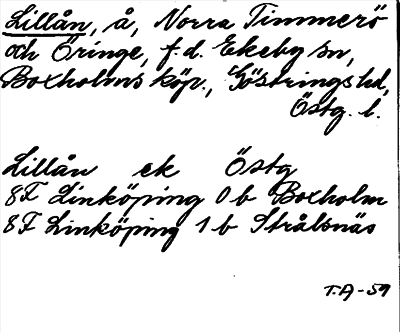 Lillån, å, Norra Timmerö
och Öringe, f.d. Ekeby sn,
Boxholms köp., Göstrings hd,
Östg. l.
Lillån ek Östg
8F Linköping 0b Boxholm
8F Linköping 1b Strålsnäs
T.A-59